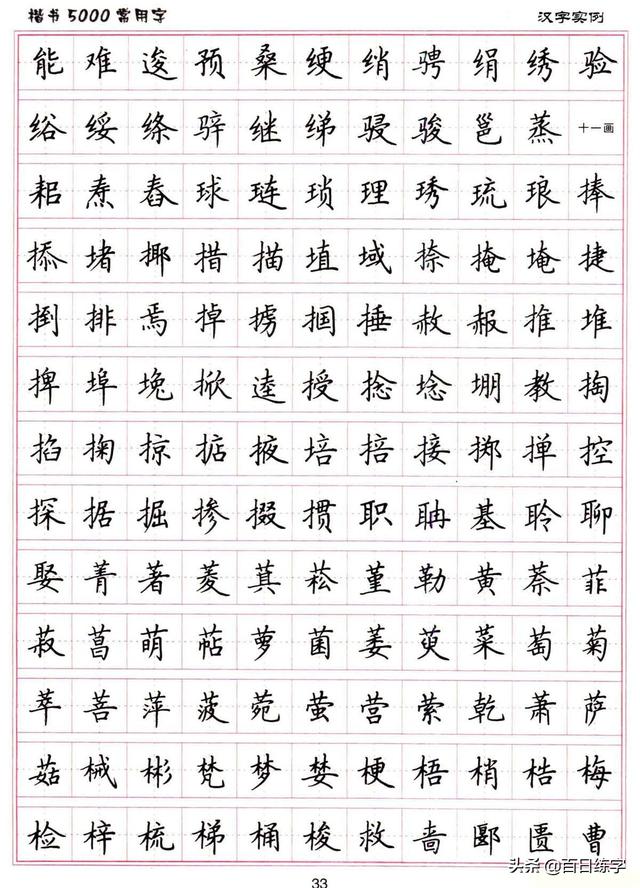 楷书5000常用字 汉字实例
能难逡预桑绠绡骋绢绣验
绤绥绦骍继绨骎骏邕蒸十一画
耜焘舂球琏琐理琇琉琅捧
掭堵揶措描埴域捺掩埯捷
捯排焉掉掳掴捶赦赧推堆
捭埠堍掀逵授捻埝堋教掏
掐掬掠掂掖培掊接掷掸控
探据掘掺掇掼职聃基聆聊
娶菁著菱萁菘堇勒黄萘菲
菽菖萌萜萝菌萎萸菜萄菊
萃菩萍菠菀萤营萦乾萧萨
菇械彬梵梦婪梗梧梢梏梅
检梓梳梯桶梭救啬郾匮曹
33
头条@百日练字